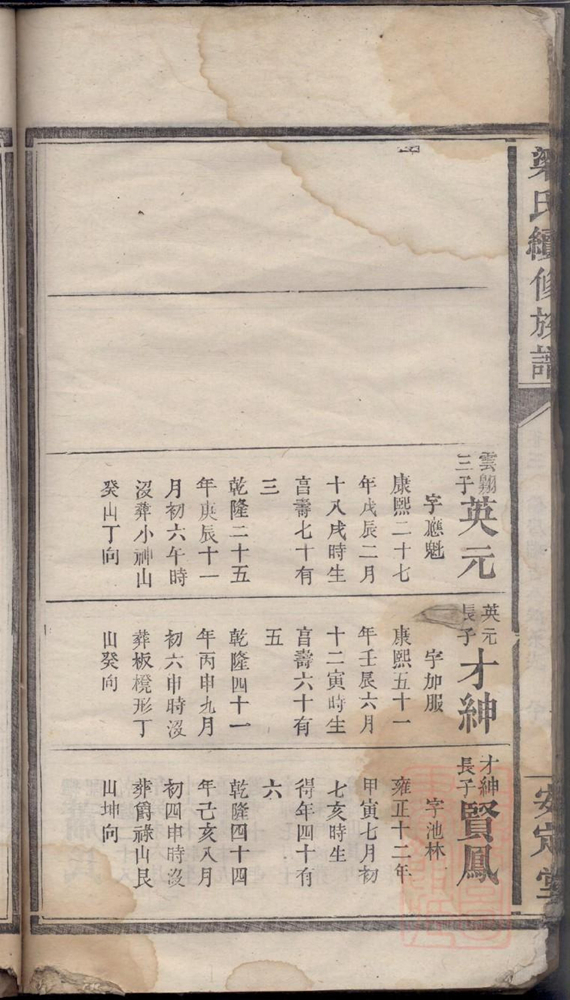 梁氏續修族譜
安定堂
雲翔
三子
英元
字應魁
康熙二十七
年戊辰二月
十八戌時生
享壽七十有
三
乾隆二十五
年庚辰十一
月初六午時
沒葬小神山
癸山丁向
英元
長子
才紳
字加服
康熙五十一
年壬辰六月
十二寅時生
享壽六十有
五
乾隆四十一
年丙申九月
初六申時沒
葬板櫈形丁
山癸向
才紳
長子
賢鳳
字池林
雍正十二年
甲寅七月初
七亥時生
得年四十有
六
乾隆四十四
年己亥八月
初四申時沒
葬爵祿山艮
山坤向